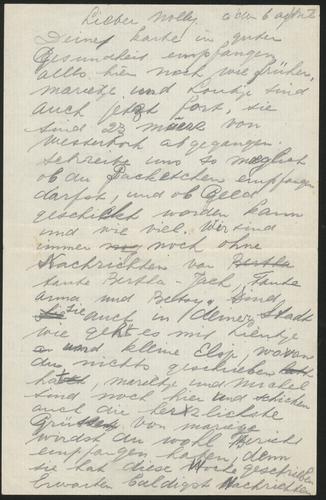 Lieber Nolly, a den 6 
Deine Karte in guter
Gesundheit empfangen
alles hier noch wie früher,
marietje und Loutje sind
auch jetzt fort, sie
sind 23 von
Westerbork abgegangen.
schreibe uns so möglich
ob du Packetchen empfangen
darfst, und ob Geld
geschickt worden kann
und wie viel. Wir sind
immer noch ohne
Nachrichten von
tante Bertha - Jack, Tante
anna und Betsy. Sind
sie auch in deiner Stadt
wie geht es mit Lientje
und kleine Elsje, wovon
du nichts geschrieben
marietje und Michel
sind noch hier und schicken
auch die herzlichste
von marietje
wirst du wohl Bericht
empfangen haben, denn
sie hat diese Woche geschrieben
Erwarten baldigst Nachrichten